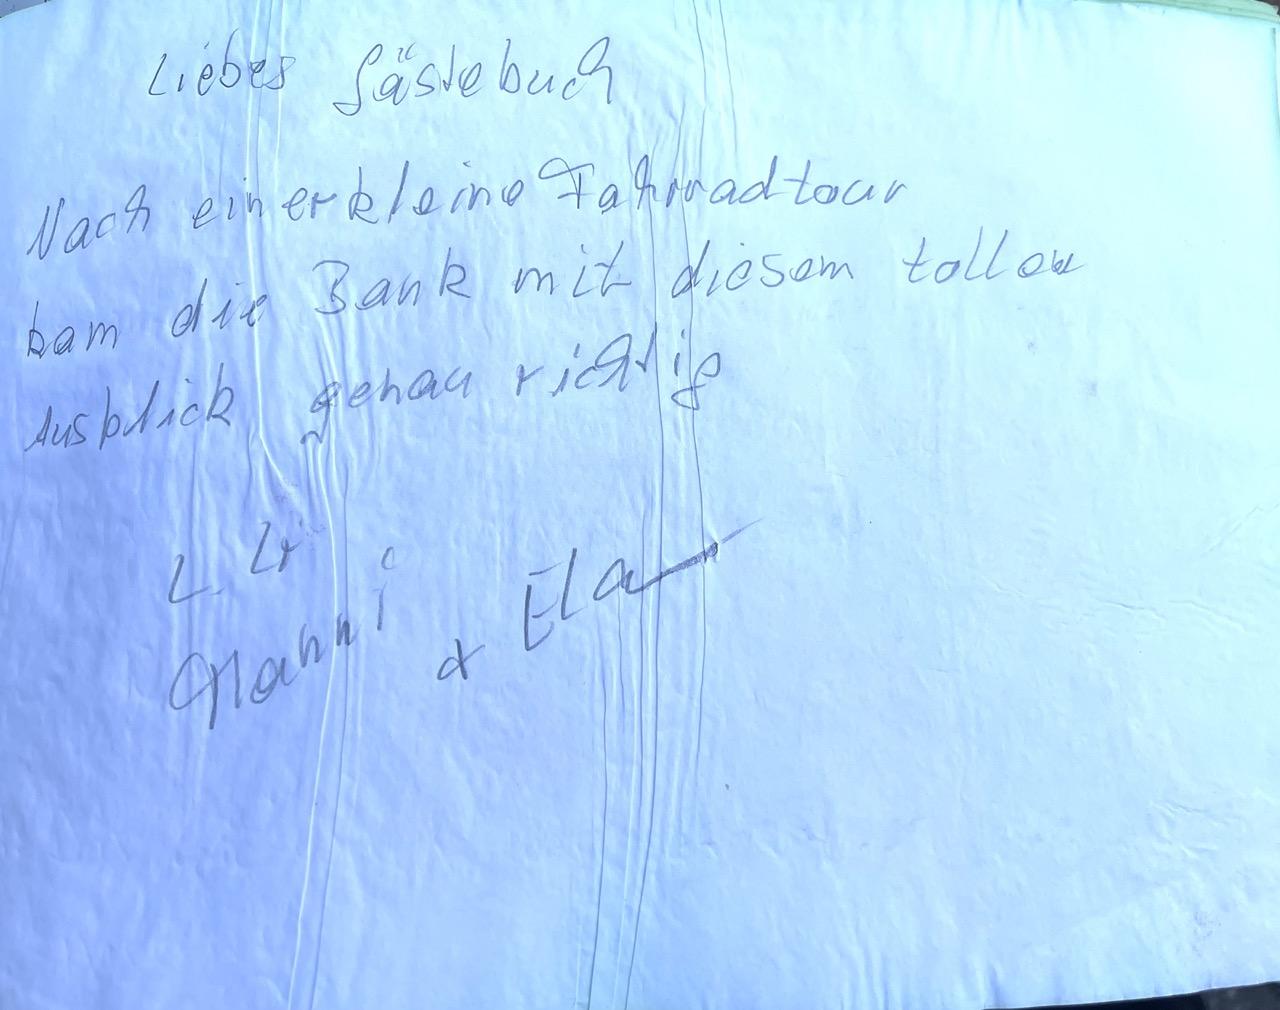 Liebes Gästebuch
Nach einer kleine Fahrradtour
kam die Bank mit diesem tollen
Ausblick genau richtig
L. Gr
Manni & Ela